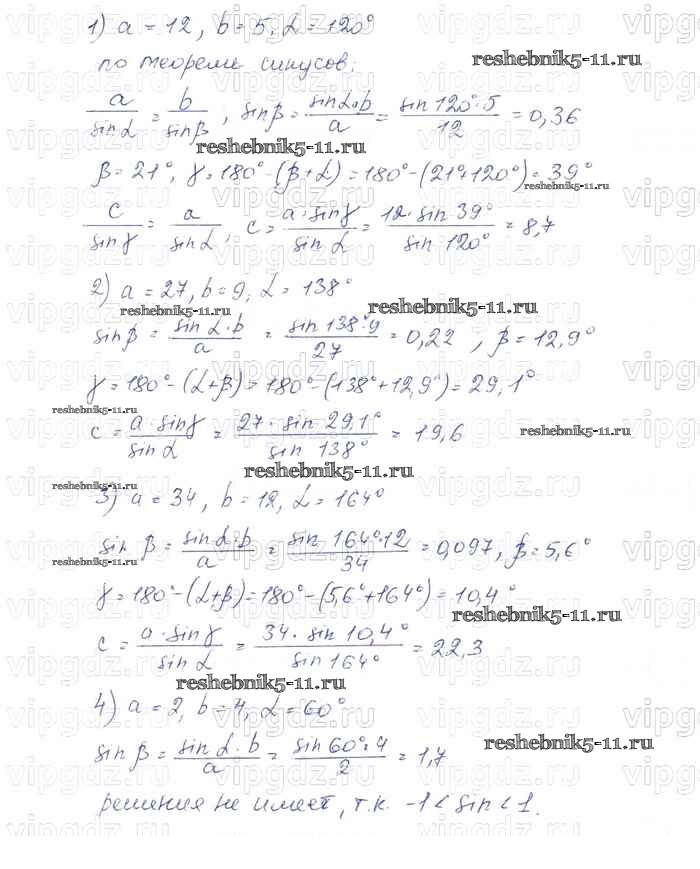 1) a = 12, b = 5, α = 120°
reshebnik5-11.ru
по теореме синусов:
a/sin α = b/sin β, sin β = sin α·b/a = sin 120°·5/12 = 0,36
reshebnik5-11.ru
β = 21°, γ = 180° - (β + α) = 180° - (21° + 120°) = 39°
reshebnik5-11.ru
c/sin γ = a/sin α, c = a·sin γ/sin α = 12·sin 39°/sin 120° = 8,7
2) a = 27, b = 9, α = 138°
reshebnik5-11.ru
reshebnik5-11.ru
sin β = sin α·b/a = sin 138°·9/27 = 0,22, β = 12,9°
γ = 180° - (α + β) = 180° - (138° + 12,9°) = 29,1°
reshebnik5-11.ru
c = a·sin γ/sin α = 27·sin 29,1°/sin 138° = 19,6
reshebnik5-11.ru
reshebnik5-11.ru
reshebnik5-11.ru
3) a = 34, b = 12, α = 164°
sin β = sin α·b/a = sin 164°·12/34 = 0,097, β = 5,6°
reshebnik5-11.ru
γ = 180° - (α + β) = 180° - (5,6° + 164°) = 10,4°
reshebnik5-11.ru
c = a·sin γ/sin α = 34·sin 10,4°/sin 164° = 22,3
reshebnik5-11.ru
4) a = 2, b = 4, α = 60°
reshebnik5-11.ru
sin β = sin α·b/a = sin 60°·4/2 = 1,7
решения не имеет, т.к. -1 < sin < 1.
vipgdz.ru